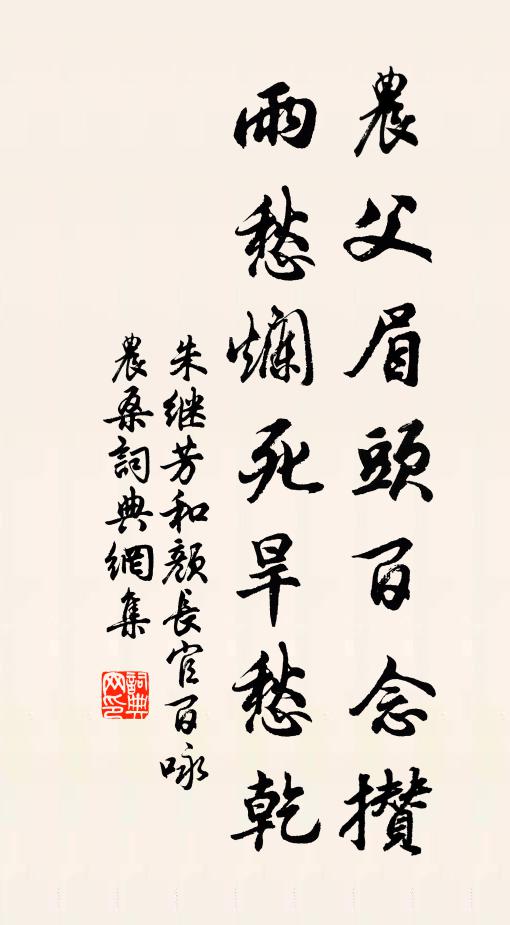 農父眉頭百念攢
雨愁爛死旱愁乾
朱继芳和顏長官百咏
農桑詞典網集
詞典网印